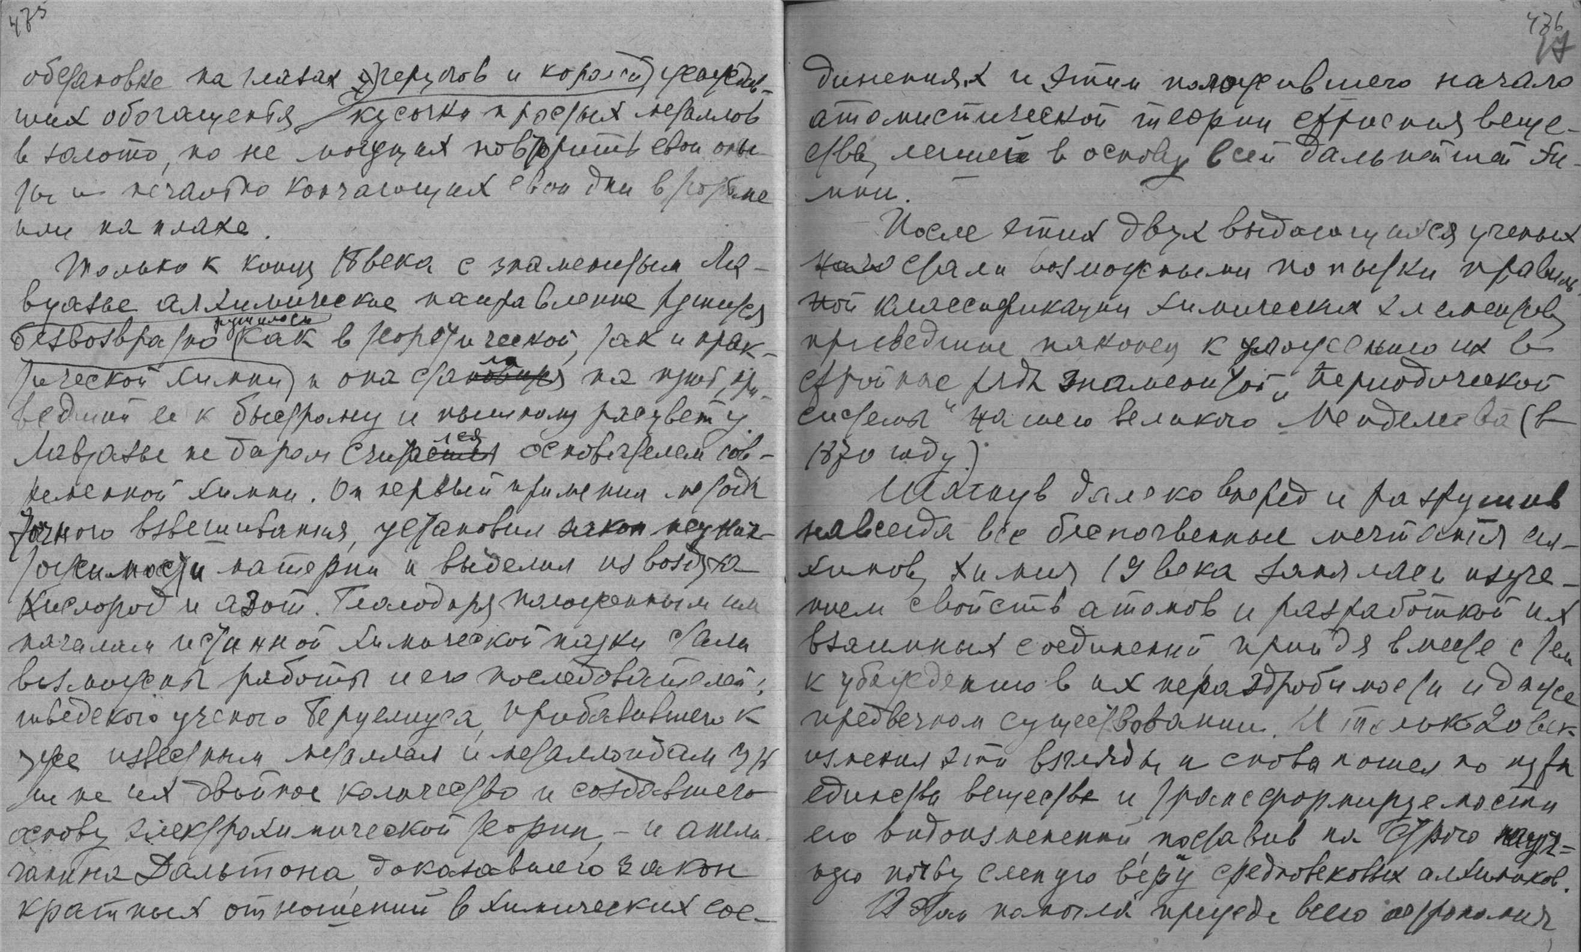 475
обстановке на глазах герцогов и королей, жаждав-
ших обогащения кусочки простых металлов
в золото, но не могущих повторить свои опы-
ты и печально кончающих свои дни в
или на плахе.
Только к концу 18 века с знаменитым Ла-
вуазье алхимическое направление рушится
безвозвратно рушилось как в теоретической, так и прак-
тической химии и она стала на путь, при-
ведший ее к быстрому и пышному расцвету.
Лавуазье не даром считался основателем сов-
ременной химии. Он первый применил методы
точного взвешивания, установил закон неунич-
тожимости материи и выделил из воздуха
кислород и азот. Благодаря положенным им
началам истинной химической науки стали
возможны работы и его последователей:
шведского ученого Берцелиуса, прибавившего к
уже известным металлам и металлоидам
ли не их двойное количество и создавшего
основу электрохимической теории, – и англи-
чанина Дальтона, доказавшего закон
кратных отношений в химических сое-
476
17
динениях и этим положившего начало
атомистической теории строения веще-
ства, легшей в основу всей дальнейшей хи-
мии.
После этих двух выдающихся ученых
стали возможными попытки правиль-
ной классификации химических элементов,
приведшие наконец к уложению их в
стройные ряды знаменитой „Периодической
системы" нашего великого Менделеева (в
1870 году).
Шагнув далеко вперед и разрушив
навсегда все беспочвенные мечтания ал-
химиков, химия 19 века занялась изуче-
нием свойств атомов и разработкой их
взаимных соединений придя вместе с тем
к убеждению в их нераздробимости и даже
предвечном существовании. И только 20 век
изменил эти взгляды и снова пошел по пути
единства вещества и трансформируемости
его видоизменений, поставив на строго науч-
ную почву слепую веру средневековых алхимиков.
Этом помогла прежде всего астрономия